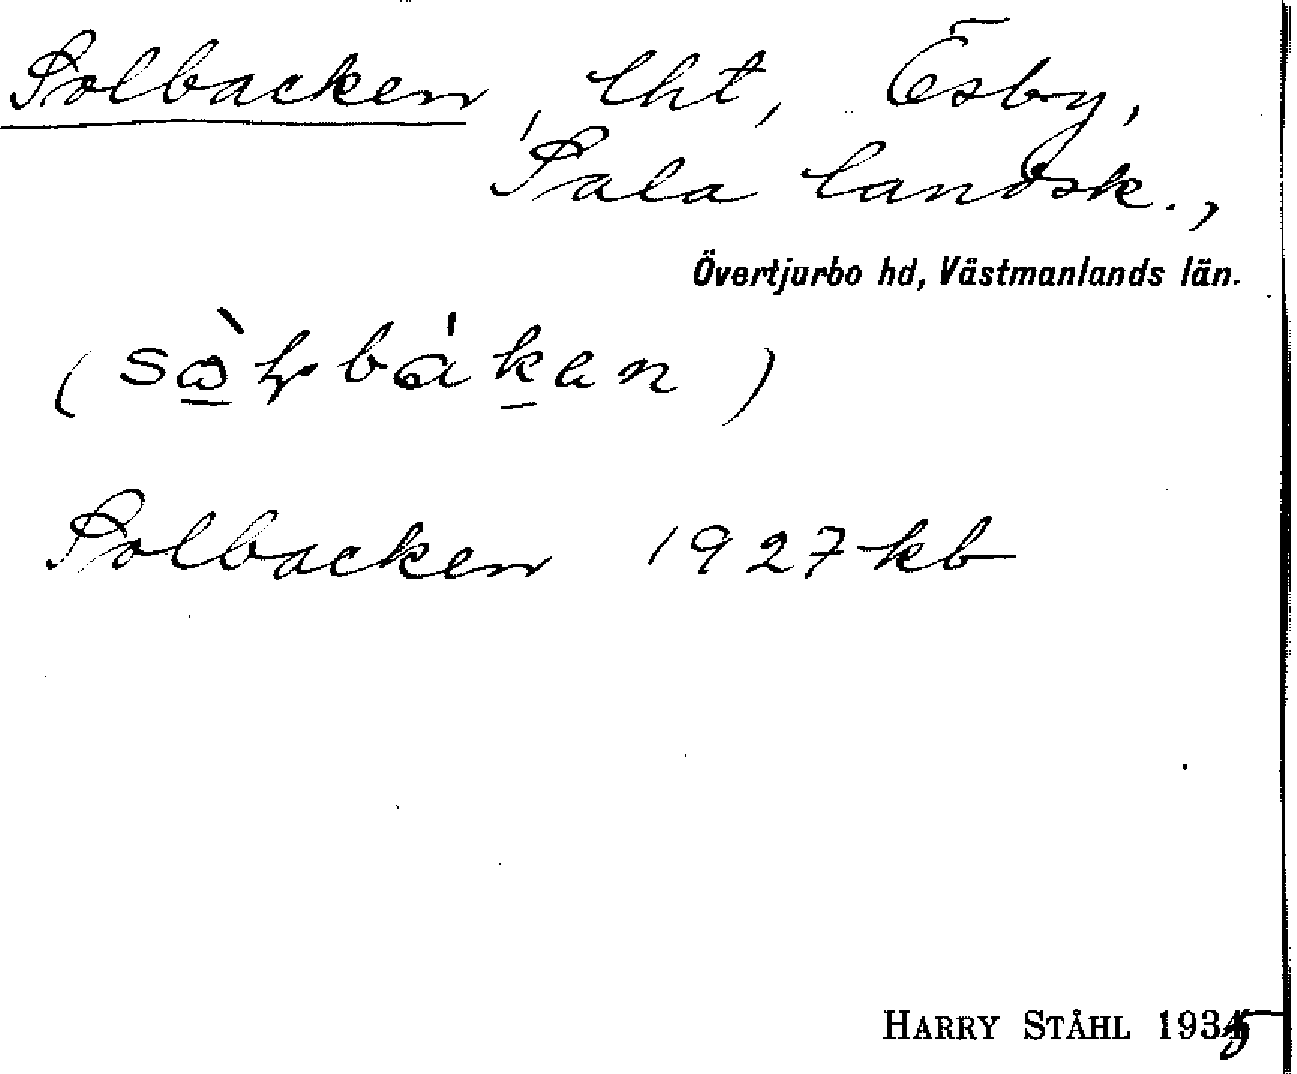 Solbacken, lht, Ösby,
Sala landsk.,
Övertjurbo hd, Västmanlands län.
Solbacken 1927 kb
HARRY STÅHL 1935